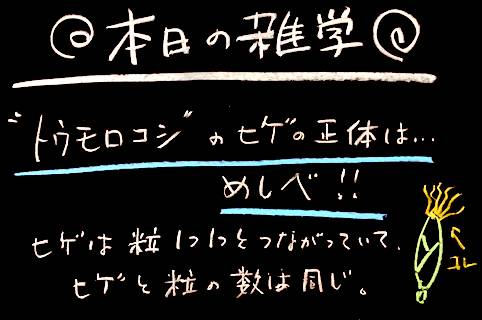 @本日の雑学@
"トウモロコシ"のヒゲの正体は…
めしべ!!
ヒゲは粒1つ1つとつながっていて、
ヒゲと粒の数は同じ。
コレ